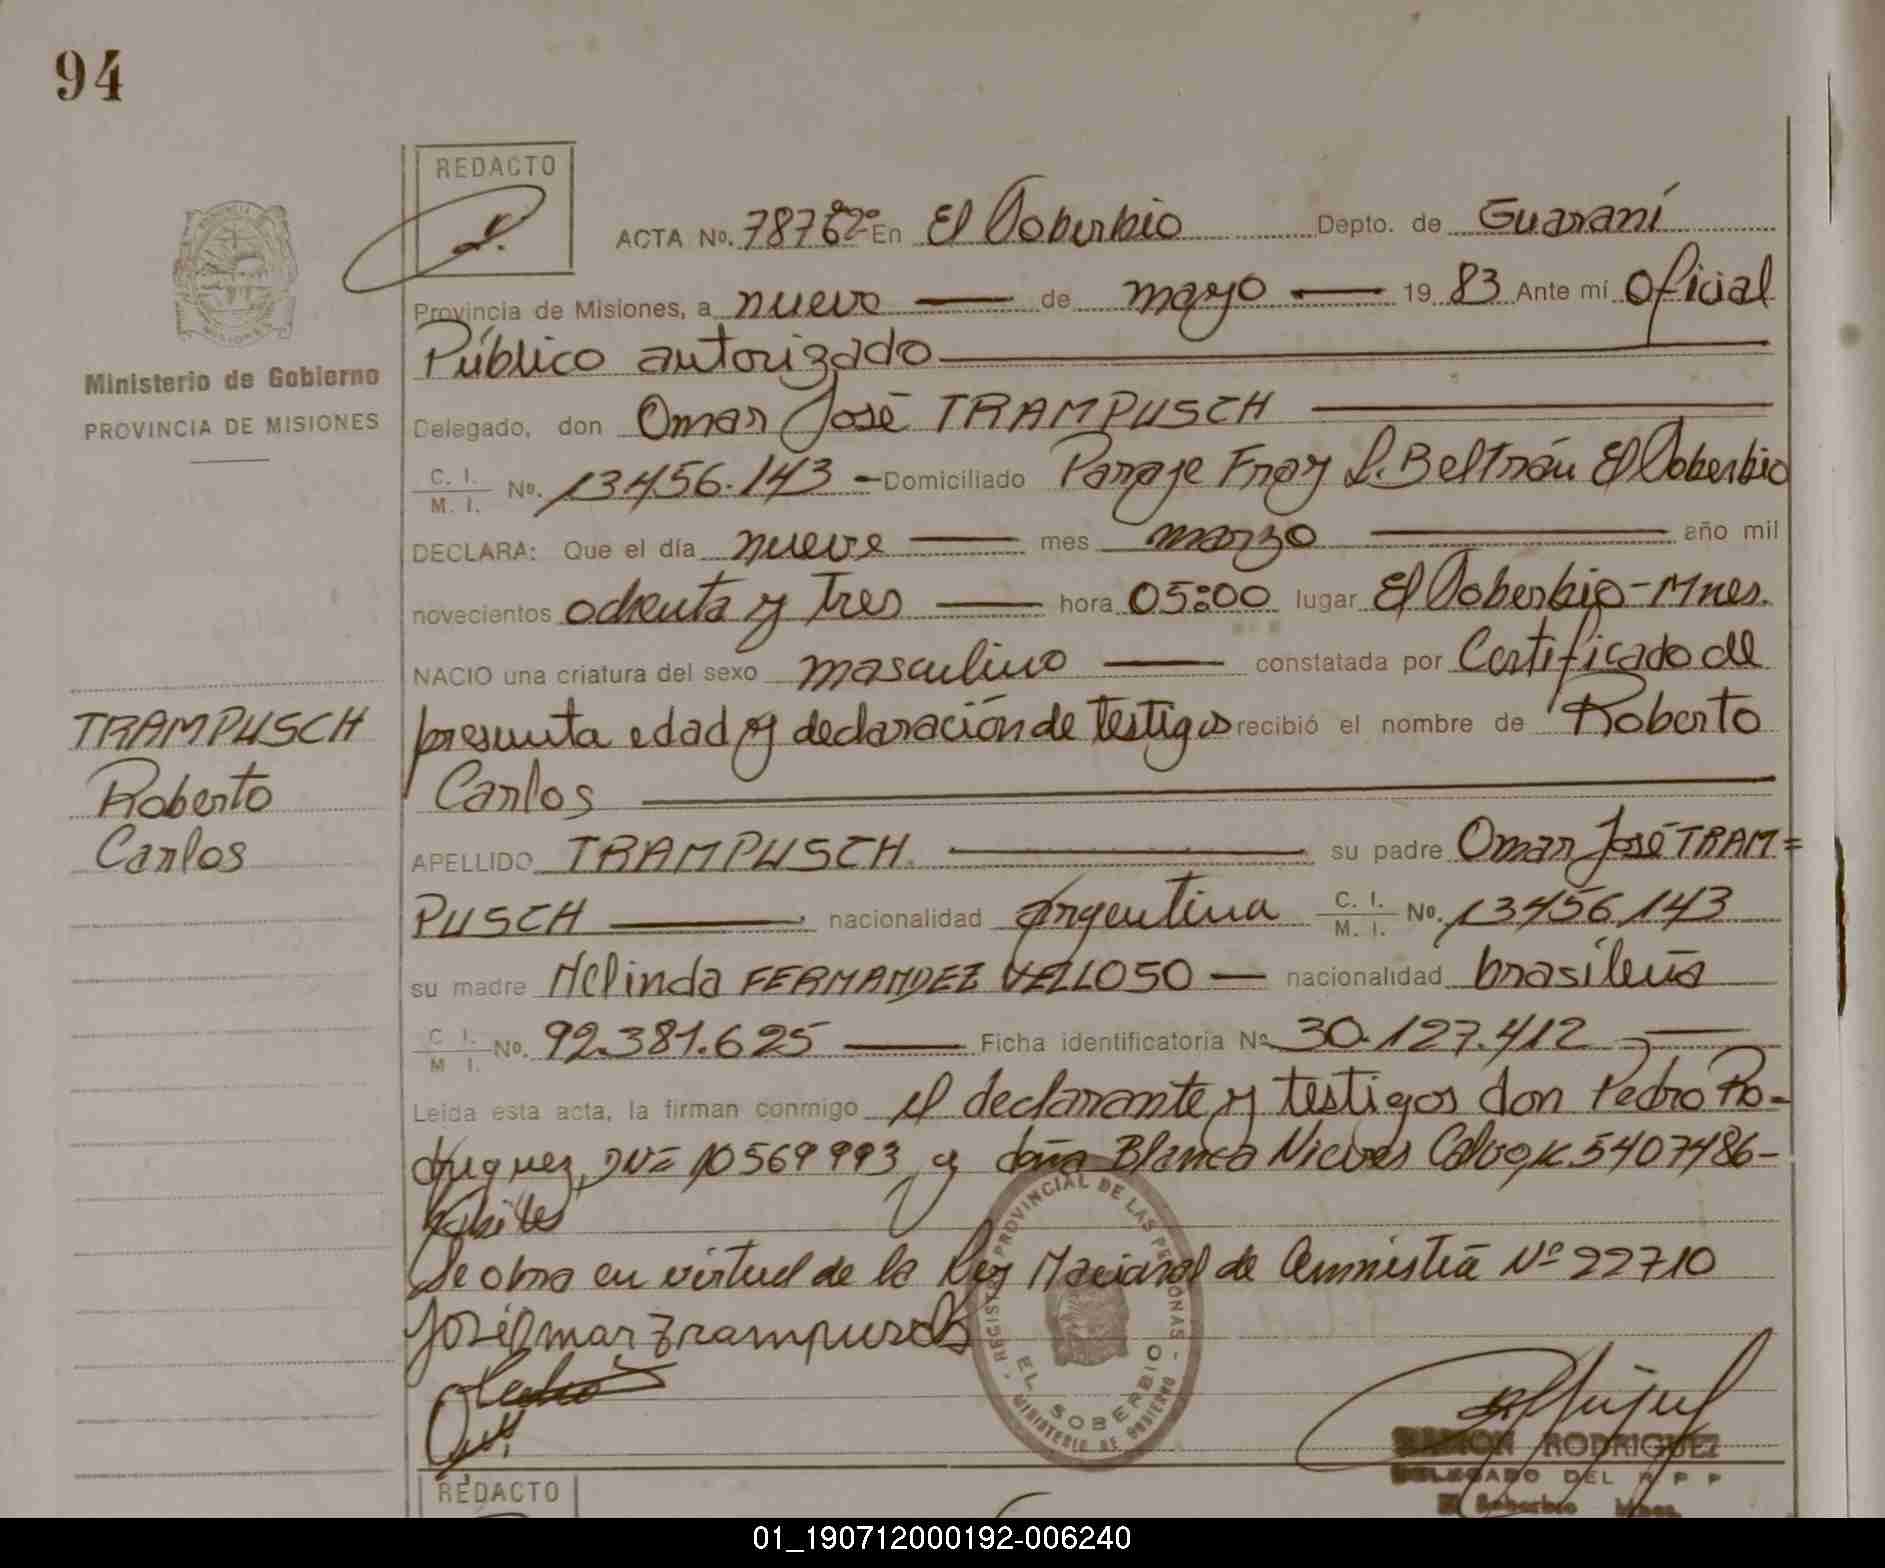 94
REDACTO
ACTA No. 78762º En El Soberbio Depto. de Guaraní
Provincia de Misiones, a nueve de mayo 19 83 Ante mí Oficial
Público autorizado
Ministerio de Gobierno
PROVINCIA DE MISIONES
Delegado, don Omar José TRAMPUSCH
C. I. / M. I. No. 13456.143 - Domiciliado Paraje Fray L. Beltrán El Soberbio
DECLARA: Que el día nueve mes marzo año mil
novecientos ochenta y tres hora 05:00 lugar El Soberbio - Mnes.
NACIO una criatura del sexo masculino constatada por Certificado de
presunta edad y declaración de testigos recibió el nombre de Roberto
Carlos
TRAMPUSCH
Roberto
Carlos
APELLIDO TRAMPUSCH su padre Omar José TRAM=
PUSCH nacionalidad argentina C. I. / M. I. No. 13456143
su madre Nelinda FERNANDEZ VELLOSO nacionalidad brasileña
C. I. / M. I. No. 92.381.625 Ficha identificatoria Nº 30.127.412
Leída esta acta, la firman conmigo el declarante y testigos don Pedro Ro-
driguez, DNI 10569993 y doña Blanca Nieves Calvo, LC 5407486-
hábiles
Se obra en virtud de la Ley Nacional de Amnistía Nº 22710
José Omar Trampusch
REGISTRO PROVINCIAL DE LAS PERSONAS - MINISTERIO DE GOBIERNO
EL SOBERBIO
RAMON RODRIGUEZ
DELEGADO DEL R P P
El Soberbio Mnes.
REDACTO
01_190712000192-006240